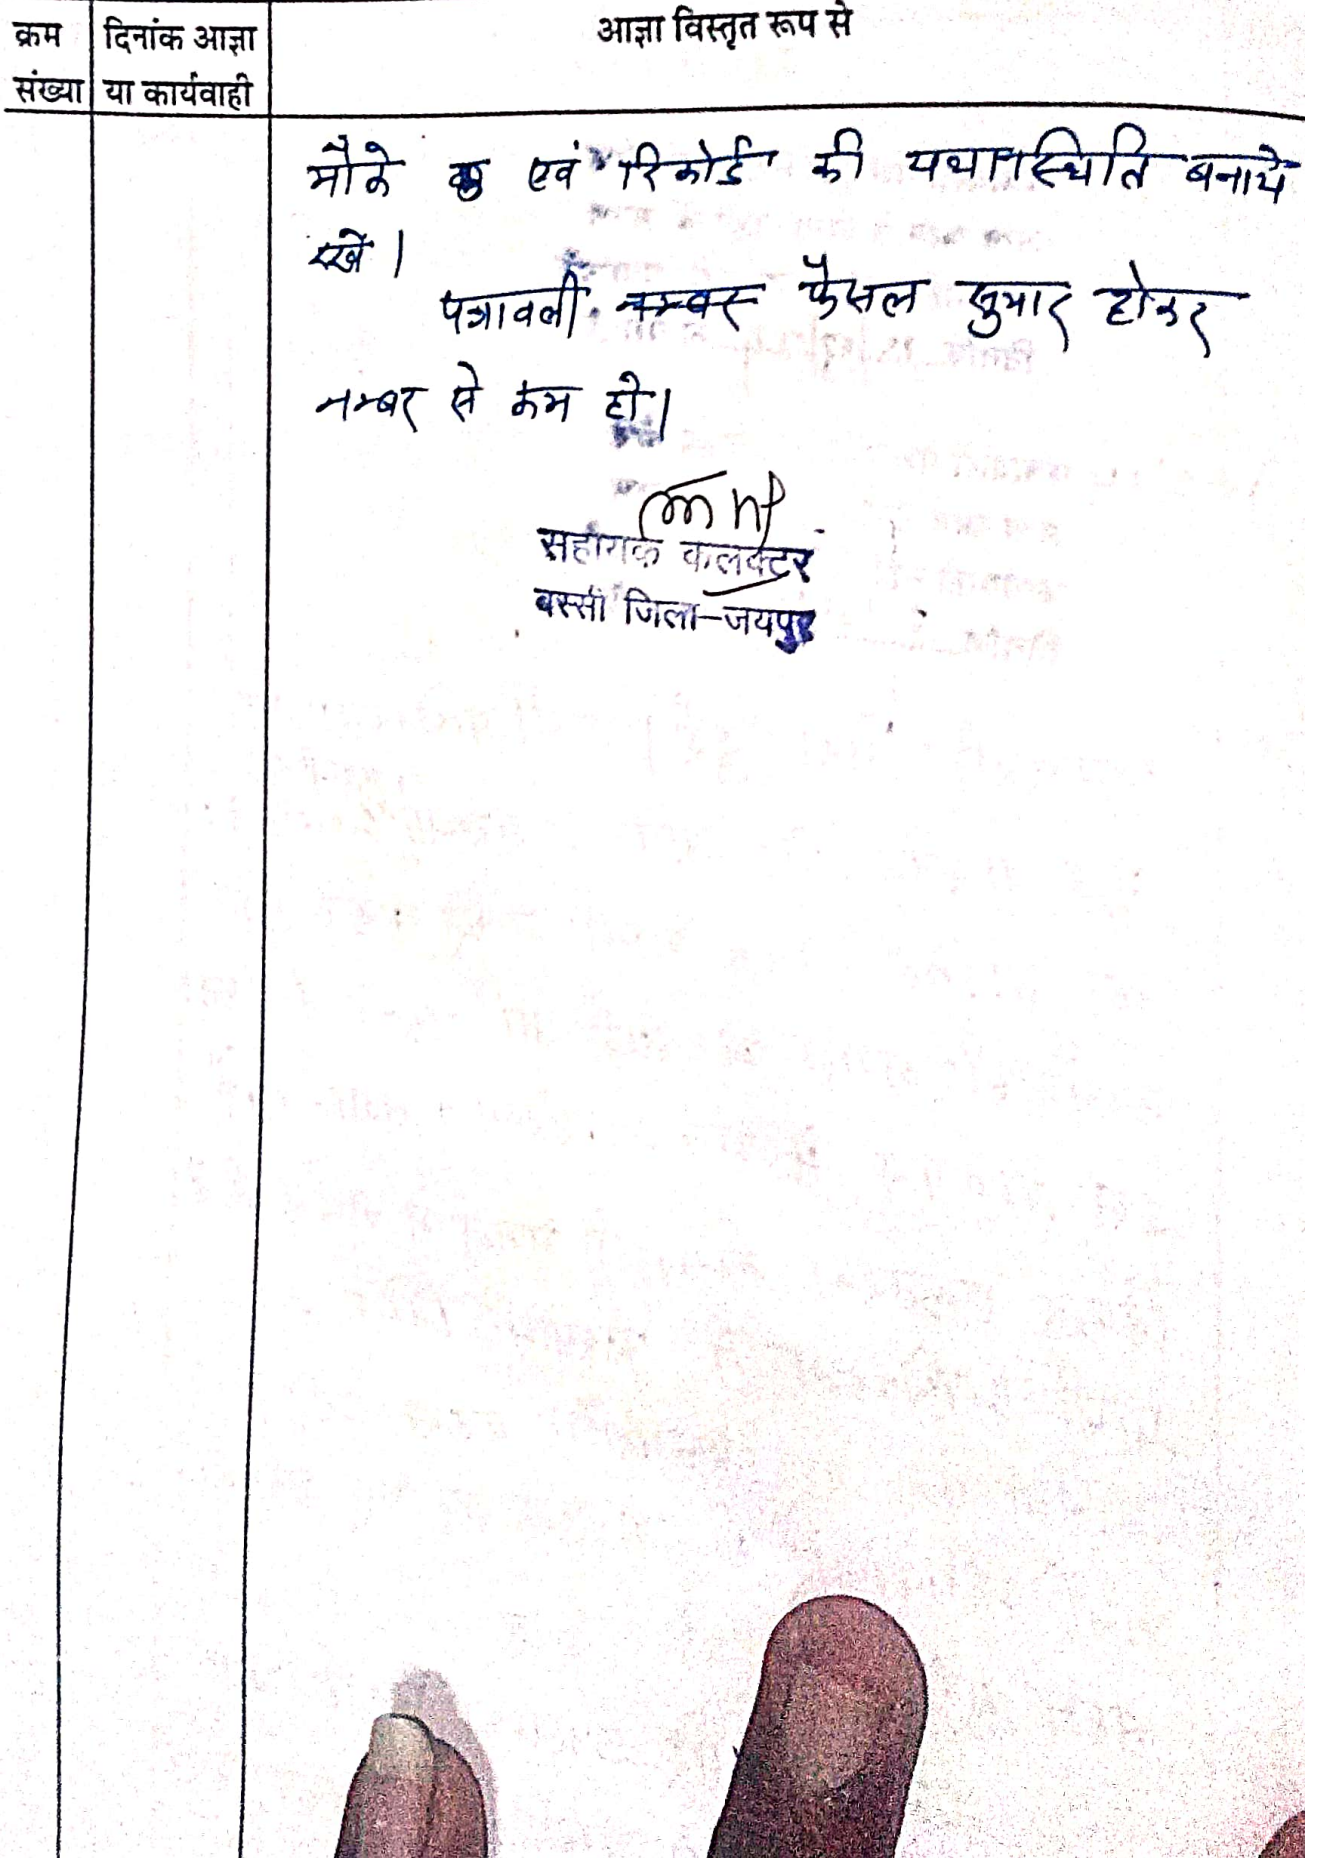 क्रम
संख्या
दिनांक आज्ञा
या कार्यवाही
आज्ञा विस्तृत रूप से
मौके एवं रिकोर्ड की यथास्थिति बनाये
रखें।
पत्रावली नम्बर फैसल सुमार होकर
नम्बर से कम हो।
सहायक कलक्टर
बस्सी जिला-जयपुर